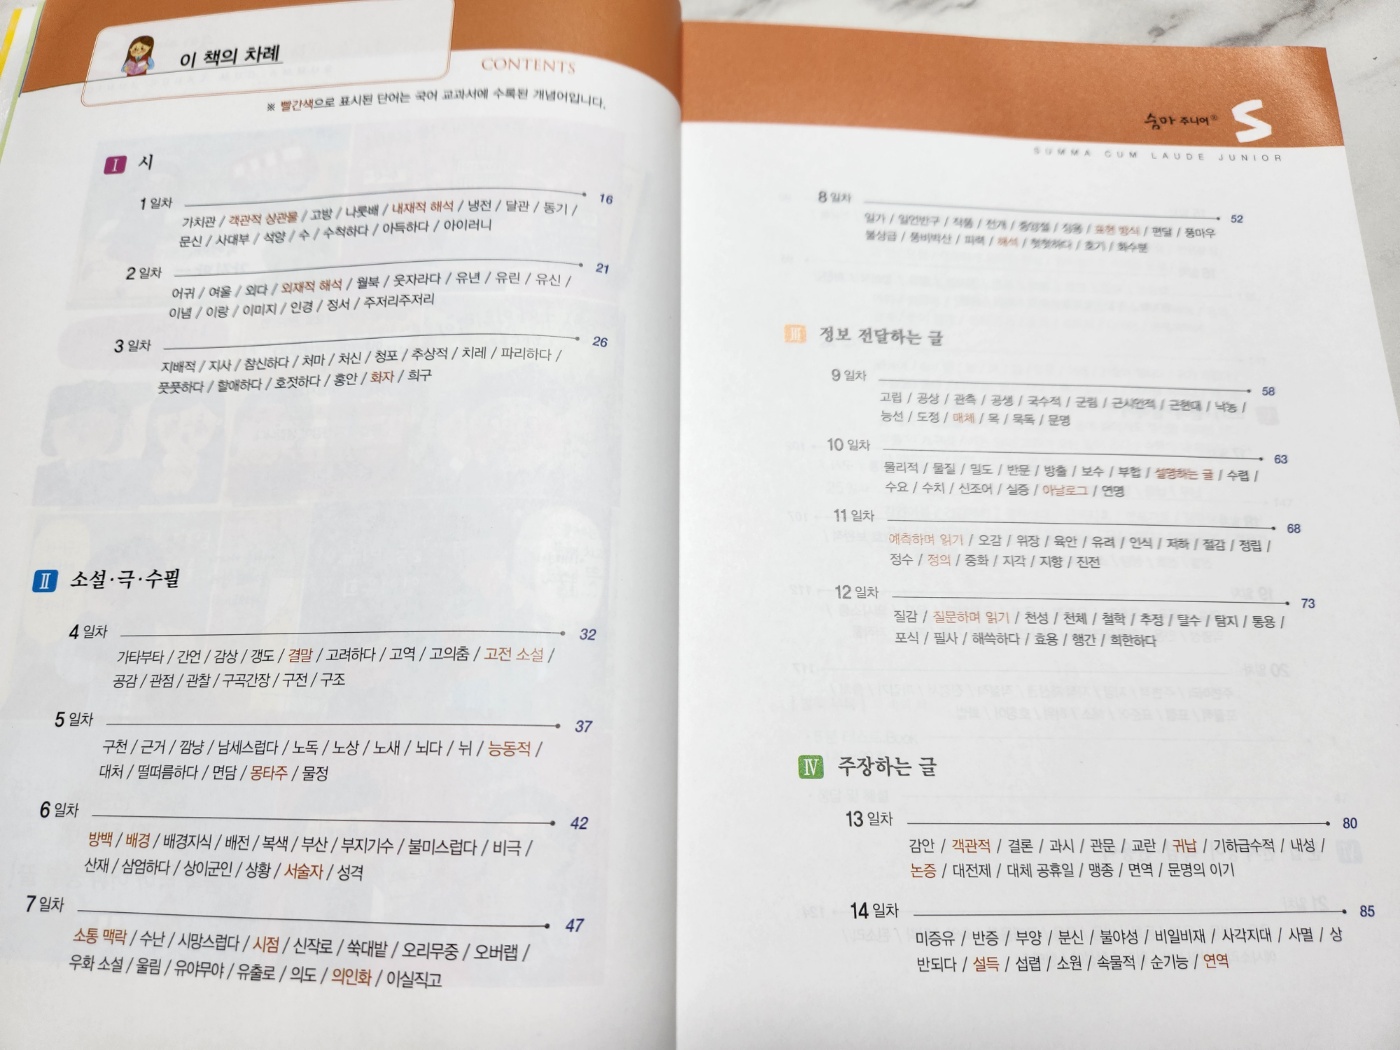 이 책의 차례
CONTENTS
※ 빨간색으로 표시된 단어는 국어 교과서에 수록된 개념어입니다.
Ⅰ 시
1일차 16
가치관 / 객관적 상관물 / 고방 / 나룻배 / 내재적 해석 / 냉전 / 달관 / 동기 /
문신 / 사대부 / 석양 / 수 / 수척하다 / 아득하다 / 아이러니
2일차 21
어귀 / 여울 / 외다 / 외재적 해석 / 월북 / 웃자라다 / 유년 / 유린 / 유신 /
이념 / 이랑 / 이미지 / 인경 / 정서 / 주저리주저리
3일차 26
지배적 / 지사 / 참신하다 / 처마 / 처신 / 청포 / 추상적 / 치레 / 파리하다 /
풋풋하다 / 할애하다 / 호젓하다 / 홍안 / 화자 / 희구
Ⅱ 소설·극·수필
4일차 32
가타부타 / 간언 / 감상 / 갱도 / 결말 / 고려하다 / 고역 / 고의춤 / 고전 소설 /
공감 / 관점 / 관찰 / 구곡간장 / 구전 / 구조
5일차 37
구천 / 근거 / 깜냥 / 남세스럽다 / 노독 / 노상 / 노새 / 뇌다 / 뉘 / 능동적 /
대처 / 떨떠름하다 / 면담 / 몽타주 / 물정
6일차 42
방백 / 배경 / 배경지식 / 배전 / 복색 / 부산 / 부지기수 / 불미스럽다 / 비극 /
산재 / 삼엄하다 / 상이군인 / 상황 / 서술자 / 성격
7일차 47
소통 맥락 / 수난 / 시망스럽다 / 시점 / 신작로 / 쑥대밭 / 오리무중 / 오버랩 /
우화 소설 / 울림 / 유야무야 / 유출로 / 의도 / 의인화 / 이실직고
숨마 주니어®
SUMMA CUM LAUDE JUNIOR
8일차 52
일가 / 일언반구 / 작품 / 전개 / 중앙절 / 징용 / 표현 방식 / 편달 / 풍마우
불상급 / 풍비박산 / 피력 / 해석 / 헛헛하다 / 호기 / 화수분
Ⅲ 정보 전달하는 글
9일차 58
고립 / 공상 / 관측 / 공생 / 국수적 / 군림 / 근시안적 / 근현대 / 낙농 /
능선 / 도정 / 매체 / 목 / 묵독 / 문명
10일차 63
물리적 / 물질 / 밀도 / 반문 / 방출 / 보수 / 부합 / 설명하는 글 / 수렵 /
수요 / 수치 / 신조어 / 실증 / 아날로그 / 연명
11일차 68
예측하며 읽기 / 오감 / 위장 / 육안 / 유려 / 인식 / 저하 / 절감 / 정립 /
정수 / 정의 / 중화 / 지각 / 지향 / 진전
12일차 73
질감 / 질문하며 읽기 / 천성 / 천체 / 철학 / 추정 / 탈수 / 탐지 / 통용 /
포식 / 필사 / 해쓱하다 / 효용 / 행간 / 희한하다
Ⅳ 주장하는 글
13일차 80
감안 / 객관적 / 결론 / 과시 / 관문 / 교란 / 귀납 / 기하급수적 / 내성 /
논증 / 대전제 / 대체 공휴일 / 맹종 / 면역 / 문명의 이기
14일차 85
미증유 / 반증 / 부양 / 분신 / 불야성 / 비일비재 / 사각지대 / 사멸 / 상
반되다 / 설득 / 섭렵 / 소원 / 속물적 / 순기능 / 연역